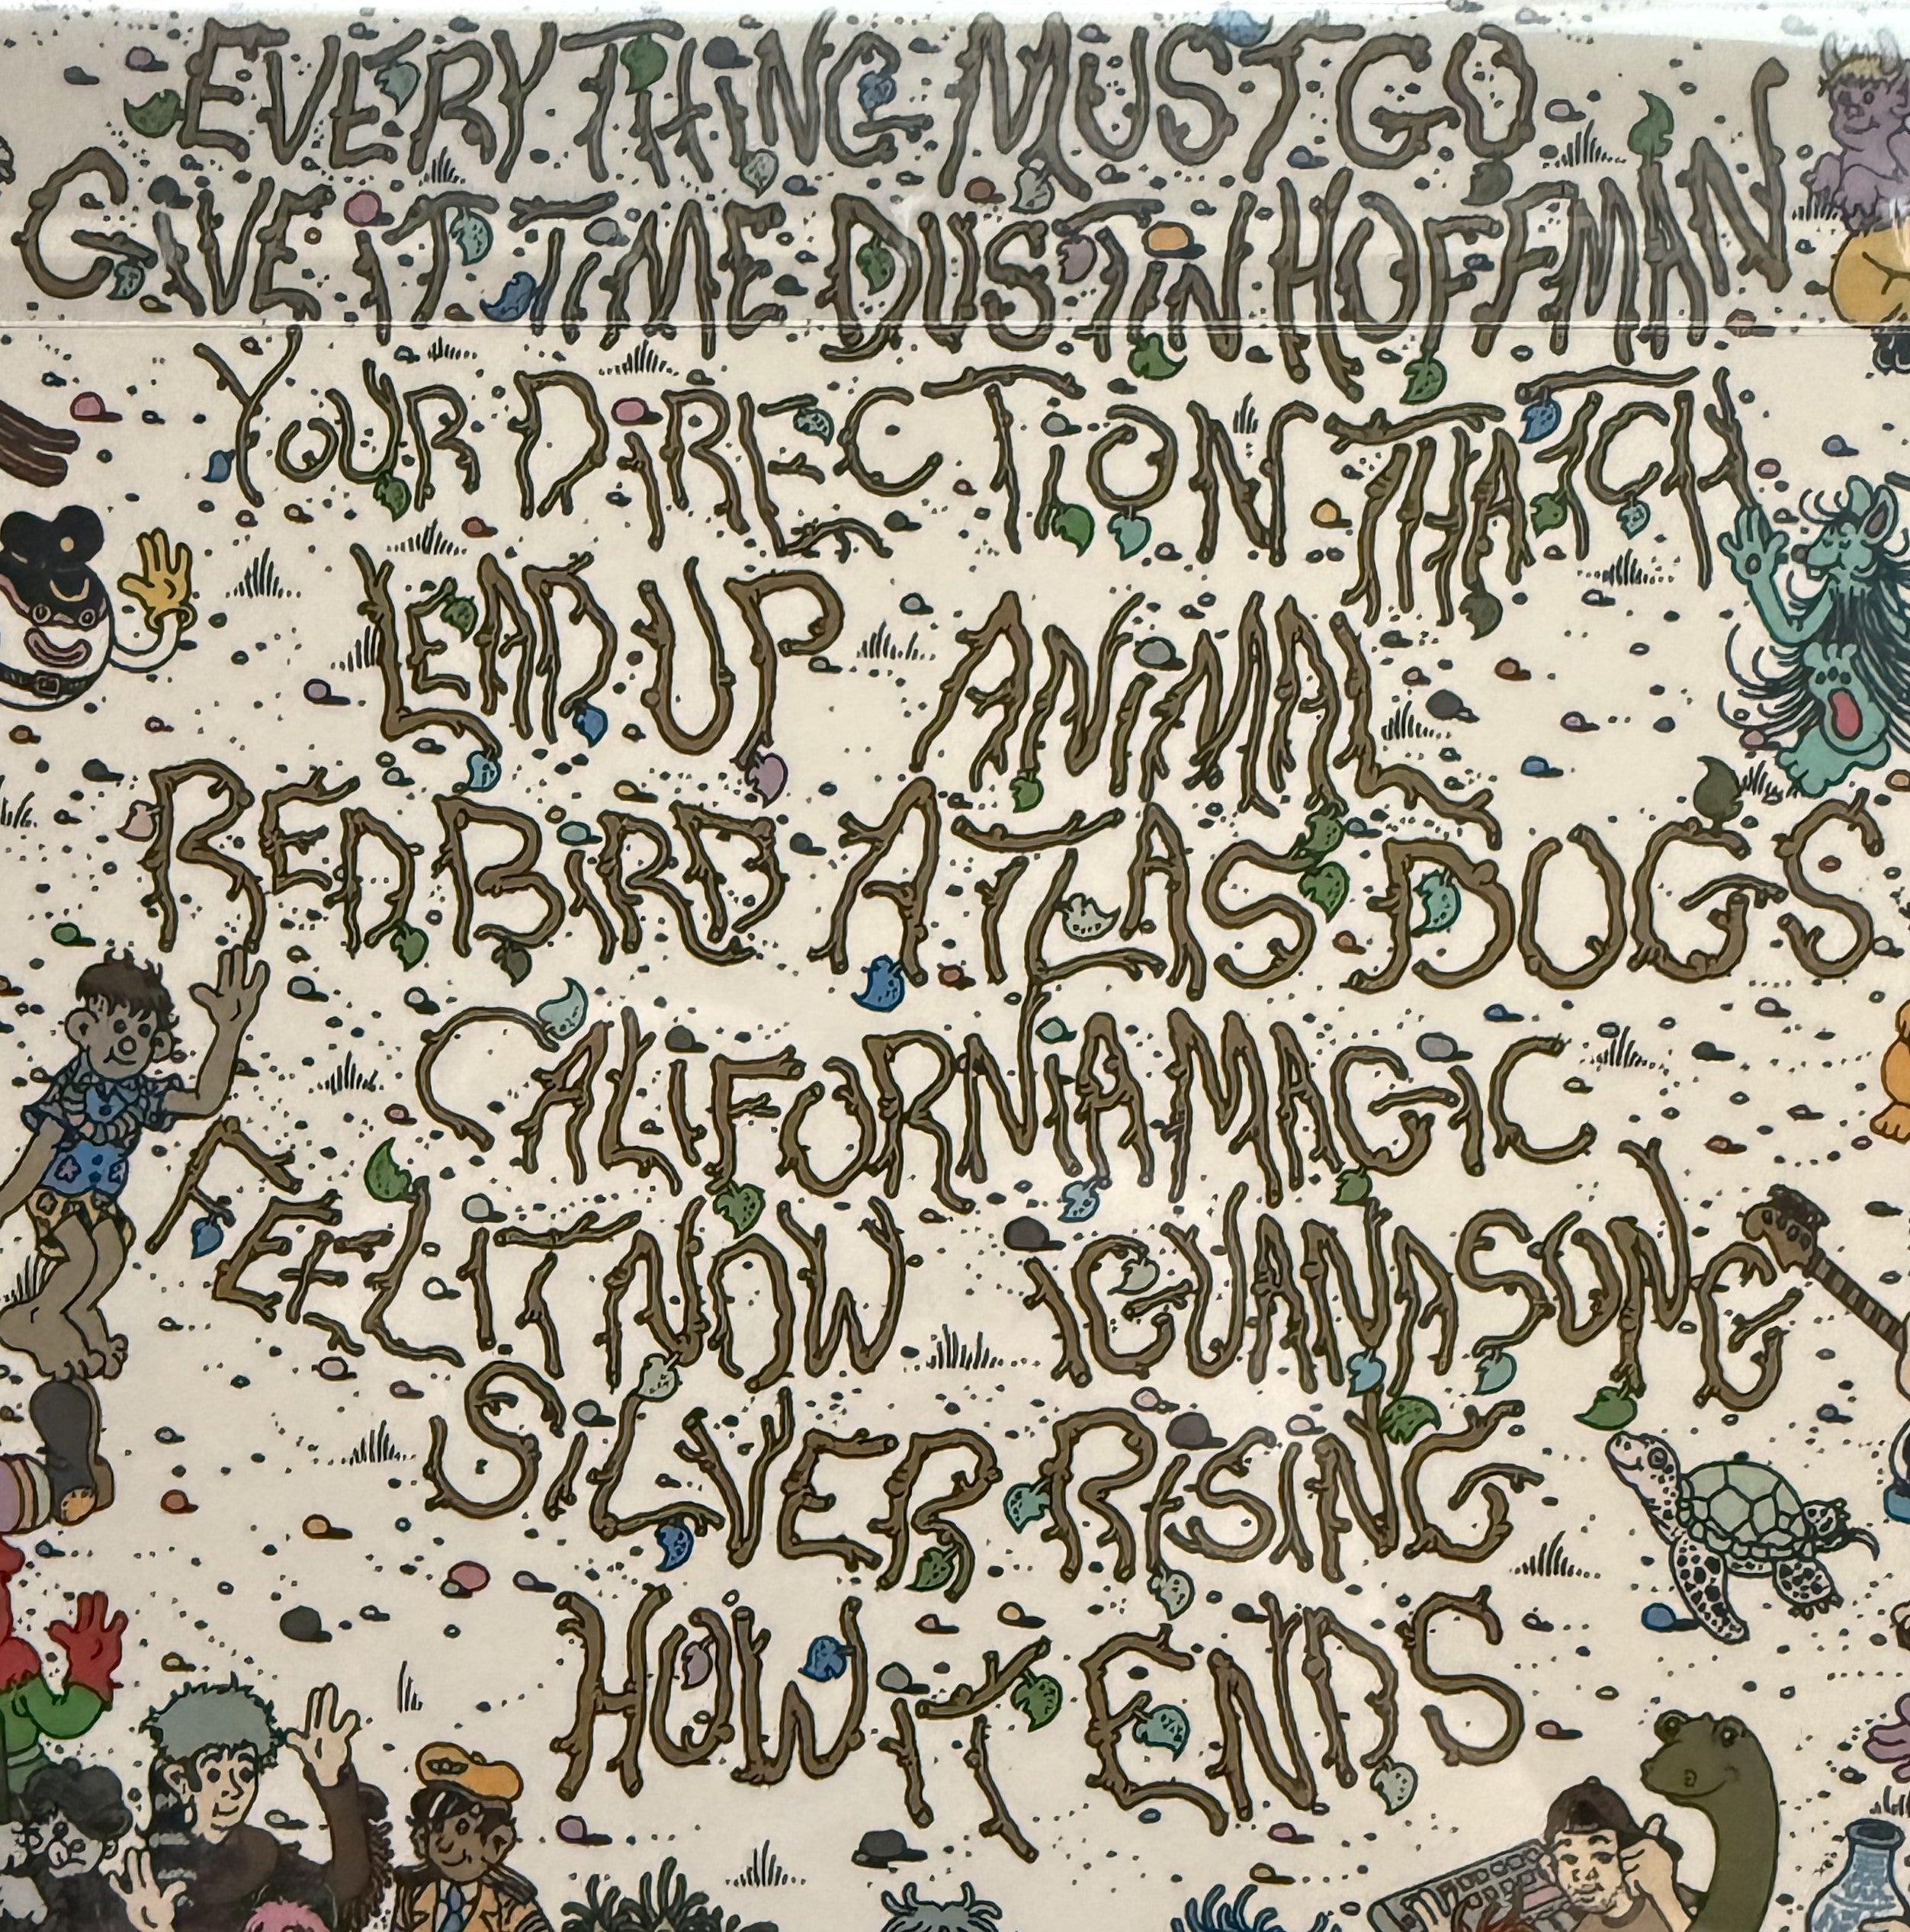 EVERYTHING MUST GO
GIVE IT TIME DUSTIN HOFFMAN
YOUR DIRECTION THATCH
LEAD UP ANIMAL
RED BIRD ATLAS DOGS
CALIFORNIA MAGIC
FEEL IT NOW IGUANA SONG
SILVER RISING
HOW IT ENDS